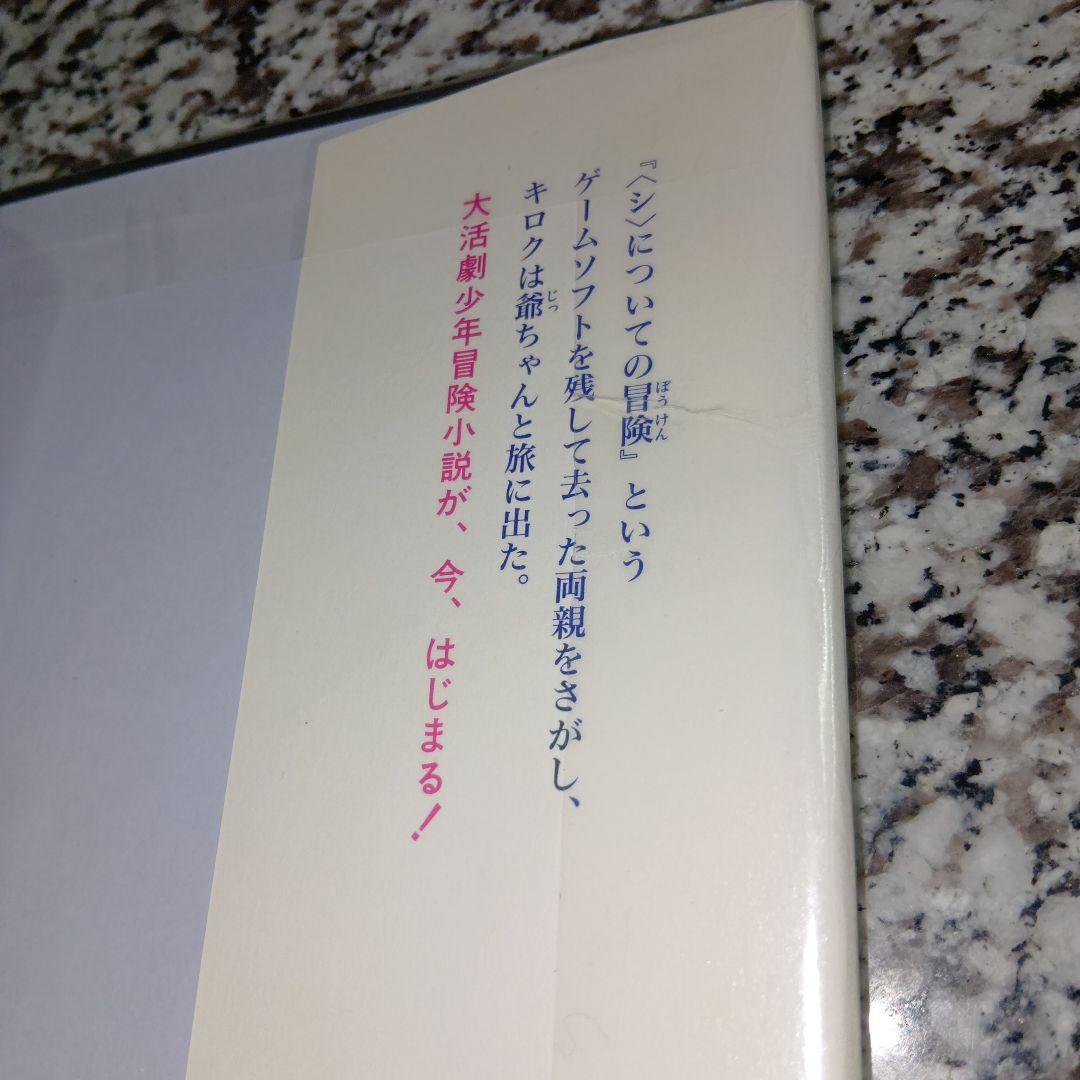 『〈シ〉についての冒険』という
ゲームソフトを残して去った両親をさがし、
キロクは爺ちゃんと旅に出た。
大活劇少年冒険小説が、今、はじまる!